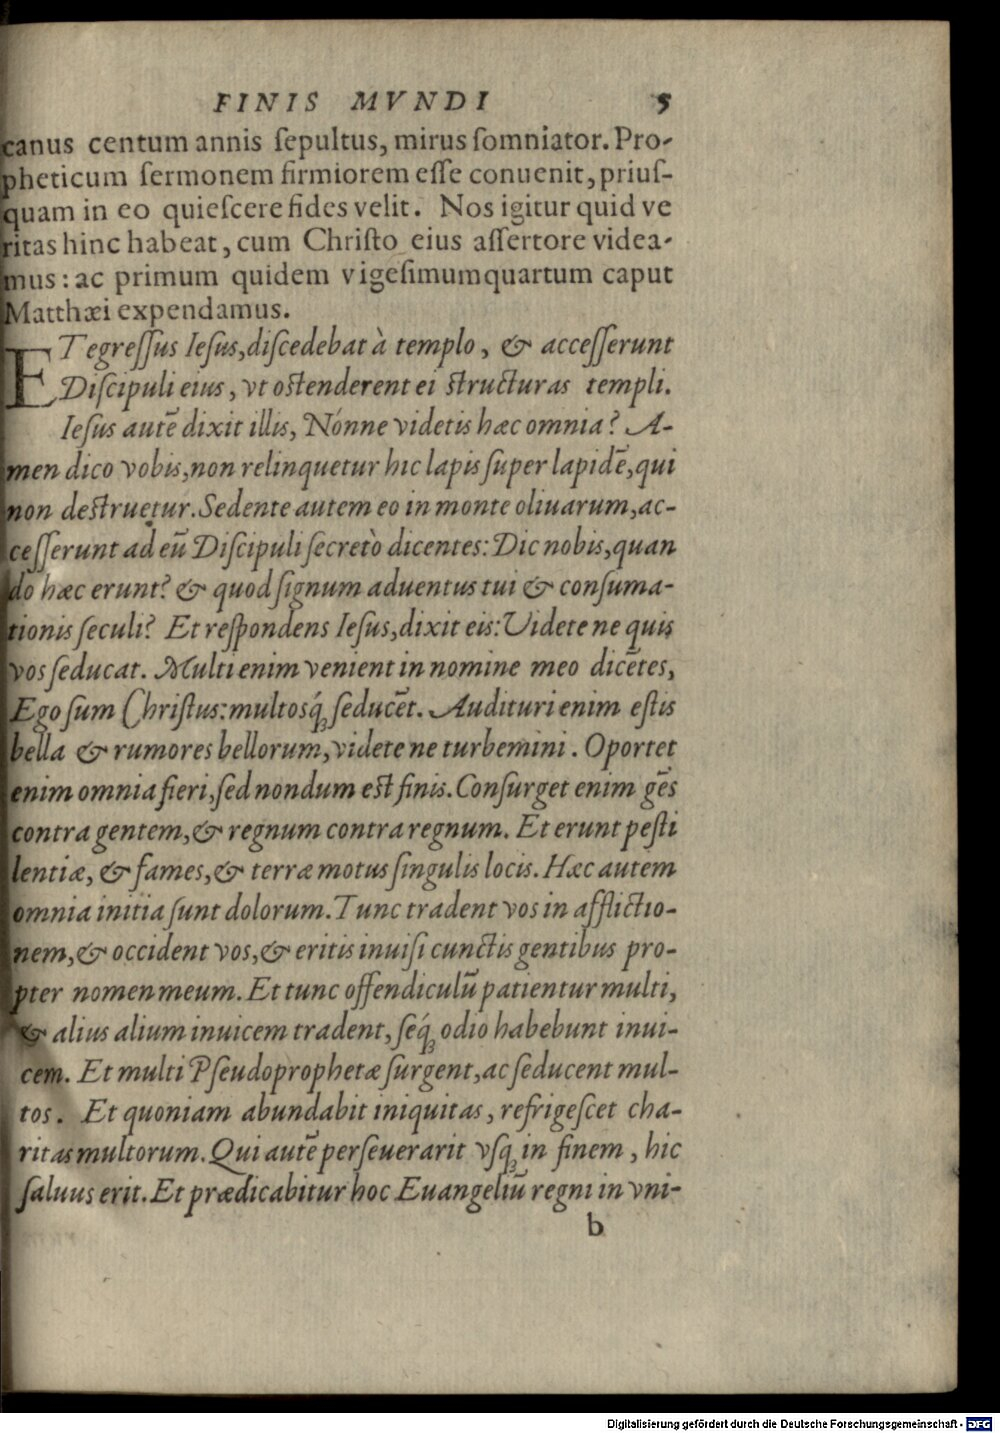 FINIS MVNDI 5
canus centum annis ſepultus, mirus ſomniator. Pro-
pheticum ſermonem firmiorem eſſe conuenit, priuſ-
quam in eo quieſcere fides velit. Nos igitur quid ve
ritas hinc habeat, cum Chriſto eius aſſertore videa-
mus: ac primum quidem vigeſimumquartum caput
Matthæi expendamus.
ET egreſſus Ieſus, diſcedebat à templo, & acceſſerunt
Diſcipuli eius, vt oſtenderent ei ſtructuras templi.
Ieſus autē dixit illis, Nónne videtis hæc omnia? A-
men dico vobis, non relinquetur hic lapis ſuper lapidē, qui
non deſtruetur. Sedente autem eo in monte oliuarum, ac-
ceſſerunt ad eū Diſcipuli ſecretò dicentes: Dic nobis, quan
do hæc erunt? & quod ſignum aduentus tui & conſuma-
tionis ſeculi? Et reſpondens Ieſus, dixit eis: Videte ne quis
vos ſeducat. Multi enim venient in nomine meo dicētes,
Ego ſum Chriſtus: multosq́; ſeducēt. Audituri enim eſtis
bella & rumores bellorum, videte ne turbemini. Oportet
enim omnia fieri, ſed nondum eſt finis. Conſurget enim gēs
contra gentem, & regnum contra regnum. Et erunt peſti
lentiæ, & fames, & terræ motus ſingulis locis. Hæc autem
omnia initia ſunt dolorum. Tunc tradent vos in afflictio-
nem, & occident vos, & eritis inuiſi cunctis gentibus pro-
pter nomen meum. Et tunc offendiculū patientur multi,
& alius alium inuicem tradent, ſeq́; odio habebunt inui-
cem. Et multi Pſeudoprophetæ ſurgent, ac ſeducent mul-
tos. Et quoniam abundabit iniquitas, refrigeſcet cha-
ritas multorum. Qui autē perſeuerarit vſq; in finem, hic
ſaluus erit. Et prædicabitur hoc Euangeliū regni in vni-
b
Digitalisierung gefördert durch die Deutsche Forschungsgemeinschaft - DFG